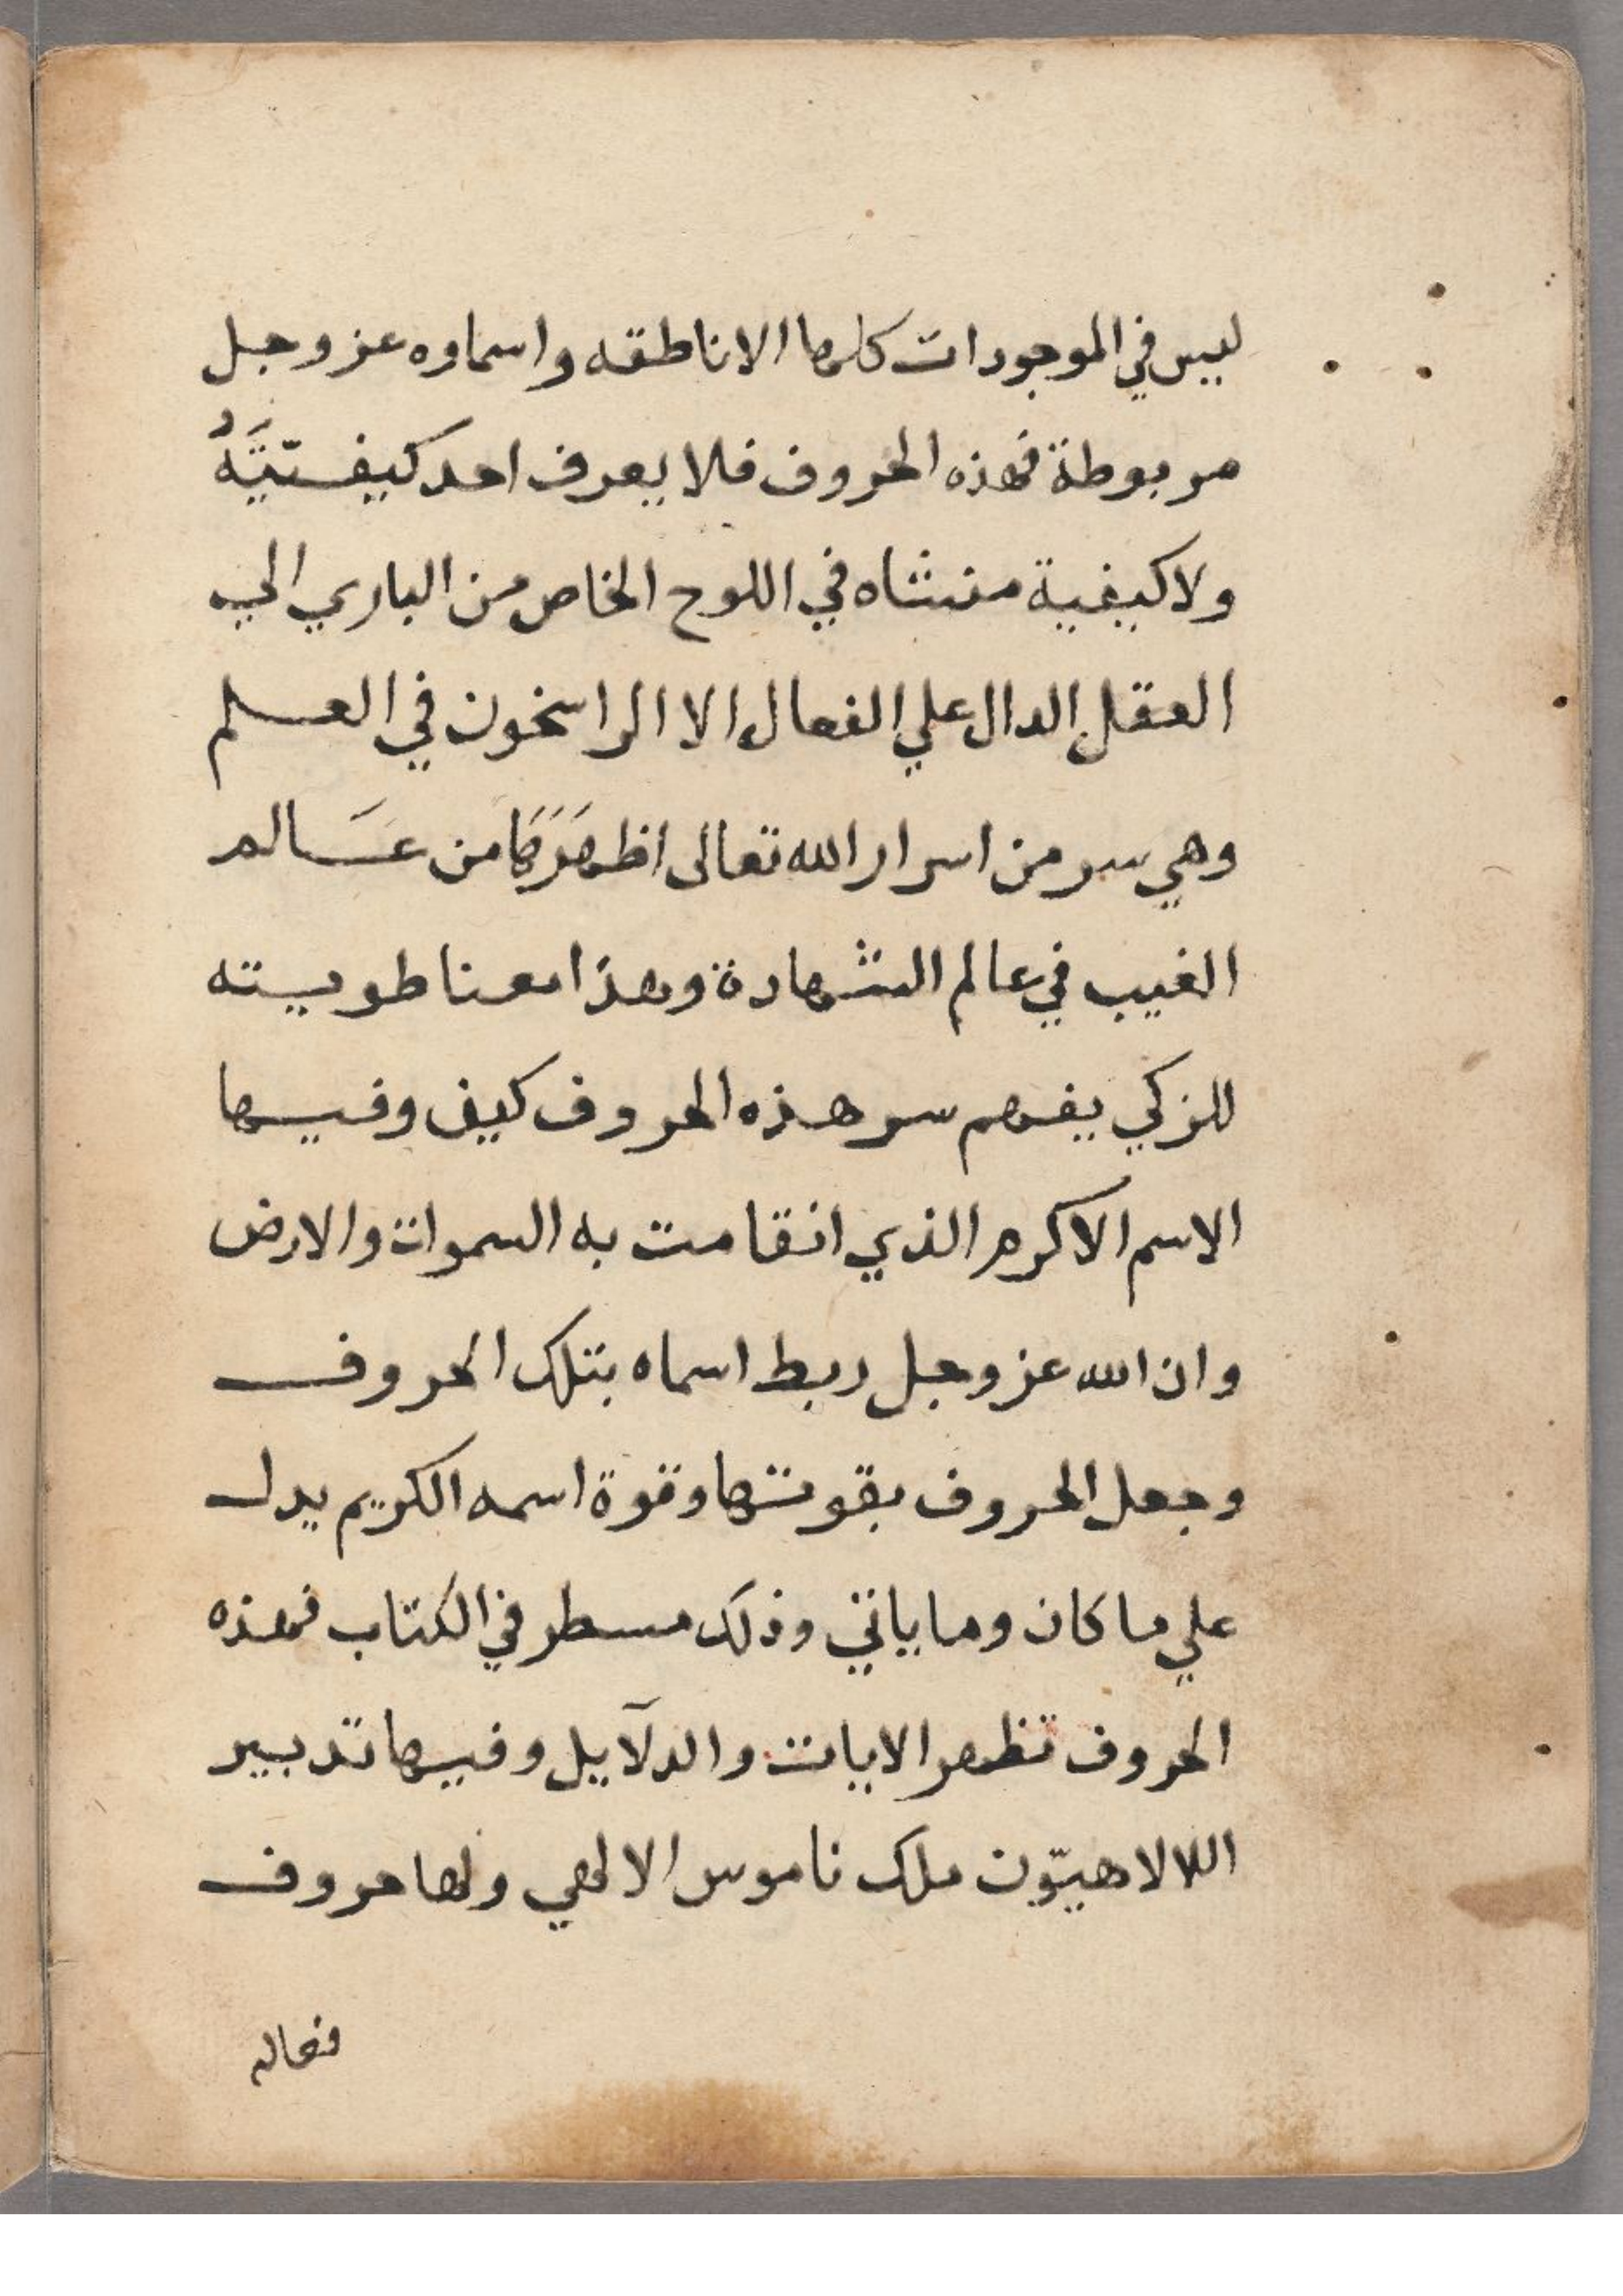 ليس في الموجودات كلها الا ناطقه واسماوه عز وجل
مربوطة فهذه الحروف فلا يعرف احد كيفيّتَهُ
ولا كيفية منشاه في اللوح الخاص من الباري الي
العقل الدال علي الفعال الا الراسخون في العلم
وهي سر من اسرار الله تعالى اظهَرَهَا من عَالم
الغيب في عالم الشهادة وهذا معنا طويته
للزكي يفهم سر هذه الحروف كيف وفيها
الاسم الاكرم الذي انقامت به السموات والارض
وان الله عز وجل ربط اسماه بتلك الحروف
وجعل الحروف بقوتها وقوة اسمه الكريم يدل
علي ما كان وما ياتي وذلك مسطر في الكتاب فهذه
الحروف تظهر الايات والدلآيل وفيها تدبير
اللالاهيّون ملك ناموس الالهي ولها حروف
فعاله